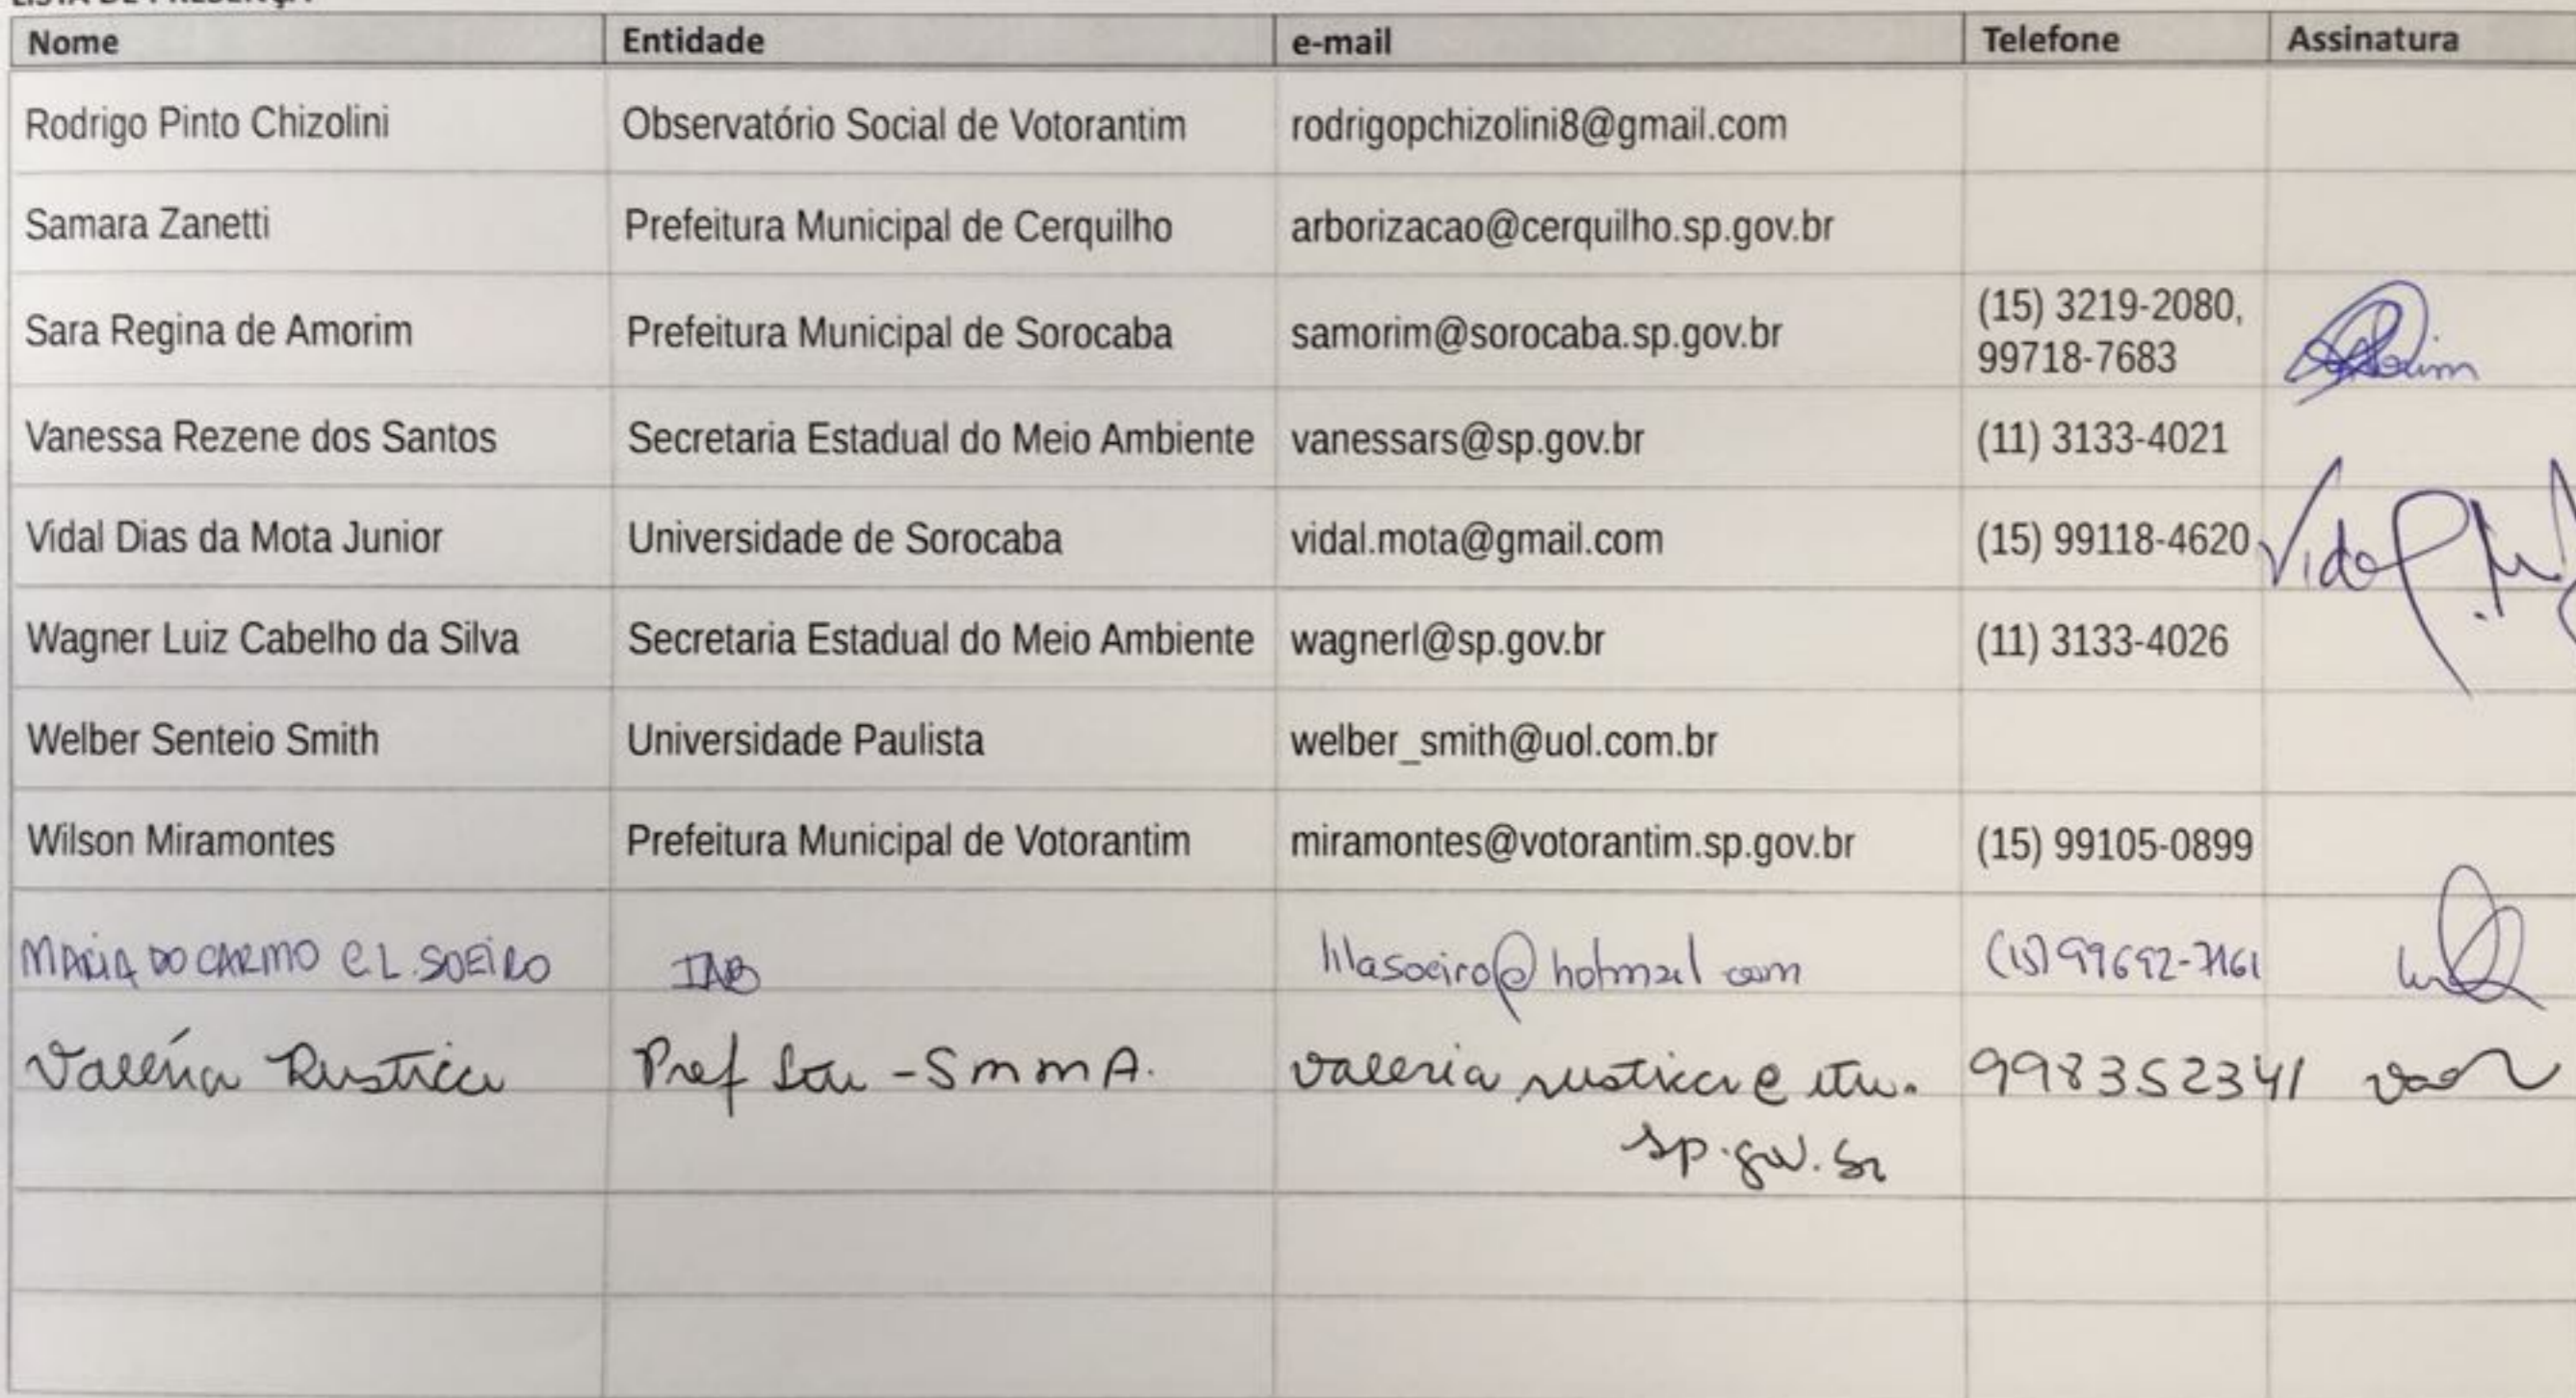 LISTA DE PRESENÇA
Nome Entidade e-mail Telefone Assinatura
Rodrigo Pinto Chizolini Observatório Social de Votorantim rodrigopchizolini8@gmail.com
Samara Zanetti Prefeitura Municipal de Cerquilho arborizacao@cerquilho.sp.gov.br
Sara Regina de Amorim Prefeitura Municipal de Sorocaba samorim@sorocaba.sp.gov.br (15) 3219-2080,
99718-7683
Vanessa Rezene dos Santos Secretaria Estadual do Meio Ambiente vanessars@sp.gov.br (11) 3133-4021
Vidal Dias da Mota Junior Universidade de Sorocaba vidal.mota@gmail.com (15) 99118-4620 Vidal
Wagner Luiz Cabelho da Silva Secretaria Estadual do Meio Ambiente wagnerl@sp.gov.br (11) 3133-4026
Welber Senteio Smith Universidade Paulista welber_smith@uol.com.br
Wilson Miramontes Prefeitura Municipal de Votorantim miramontes@votorantim.sp.gov.br (15) 99105-0899
MARIA DO CARMO C.L. SOEIRO IAB lilasoeiro@hotmail com (15) 99692-7161
Valéria Rustici Pref Itu - SMMA. valeria rustici@itu. 998352341
sp.gov.br